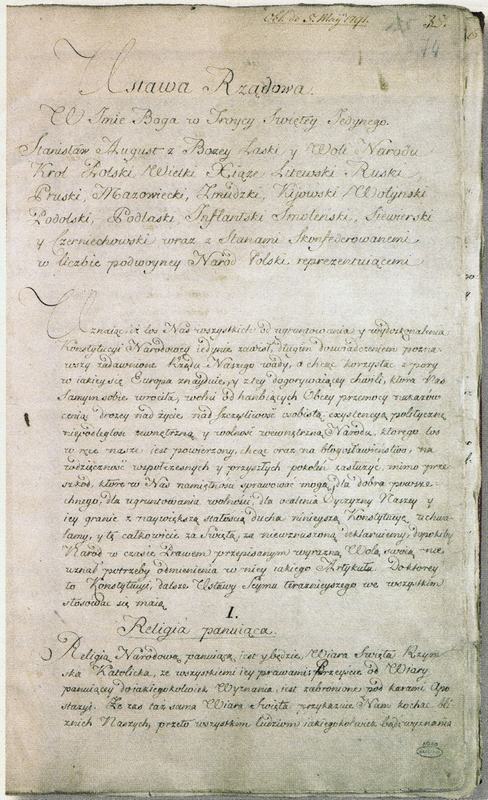 Obl. de 5. Maÿ 1791.
Ustawa Rządowa.
W Imie Boga w Troycy Swiętey Jedynego.
Stanisław August z Bożey Łaski y Woli Narodu
Krol Polski Wielki Xiąże Litewski Ruski,
Pruski, Mazowiecki, Zmudzki, Kijowski Wołynski
Podolski, Podlaski, Inflantski Smoleński, Siewierski
y Czerniechowski wraz z Stanami Skonfederowanemi
w liczbie podwoyney Narod Polski reprezentuiącemi
Uznaiąc, iż los Nas wszystkich od ugruntowania y wydoskonalenia
Konstytucyi Narodowey iedynie zawisł, długim doswiadczeniem pozna-
wszy zadawnione Rządu Naszego wady, a chcąc korzystać z pory
w iakiey się Europa znayduie, y z tey dogorywaiącey chwili, ktora Nas
Samym sobie wrociła, wolni od hanbiących Obcey przemocy nakazow
ceniąc drożey nad życie nad szczęsliwość osobistą, exystencyą polityczną
niepodległość zewnętrzną y wolność wewnętrzną Narodu, ktorego los
w ręce nasze iest powierzony, chcąc oraz na błogosławienstwo, na
wdzięczność wspołczesnych y przyszłych pokoleń zasłużyć, mimo prze-
szkod, ktore w Nas namiętnosci sprawować mogą, dla dobra powsze-
chnego, dla ugruntowania wolności, dla ocalenia Oyczyzny Naszey y
iey granic z naywiększą stałoscią ducha ninieyszą Konstytucyę uchwa-
lamy, y tę całkowicie za Swiętą, za niewzruszoną deklaruiemy, dopokiby
Narod w czasie Prawem przepisanym wyrazną Wolą swoią nie
uznał potrzeby odmienienia w niey iakiego Artykułu. Do ktorey
to Konstytucyi, dalsze Ustawy Seymu teraznieyszego we wszystkim
stosować się maią
I.
Religia panuiąca.
Religią Narodową panuiącą iest y będzie, Wiara Swięta Rzym-
ska Katolicka, ze wszystkiemi iey prawami. Przeyscie od Wiary
panuiącey do iakiegokolwiek Wyznania, iest zabronione pod karami Apo-
stazyi. Że zas taż sama Wiara Swięta przykazuie Nam kochać bli-
znich Naszych, przeto wszystkim ludziom iakiegokolwiek bądź wyznania